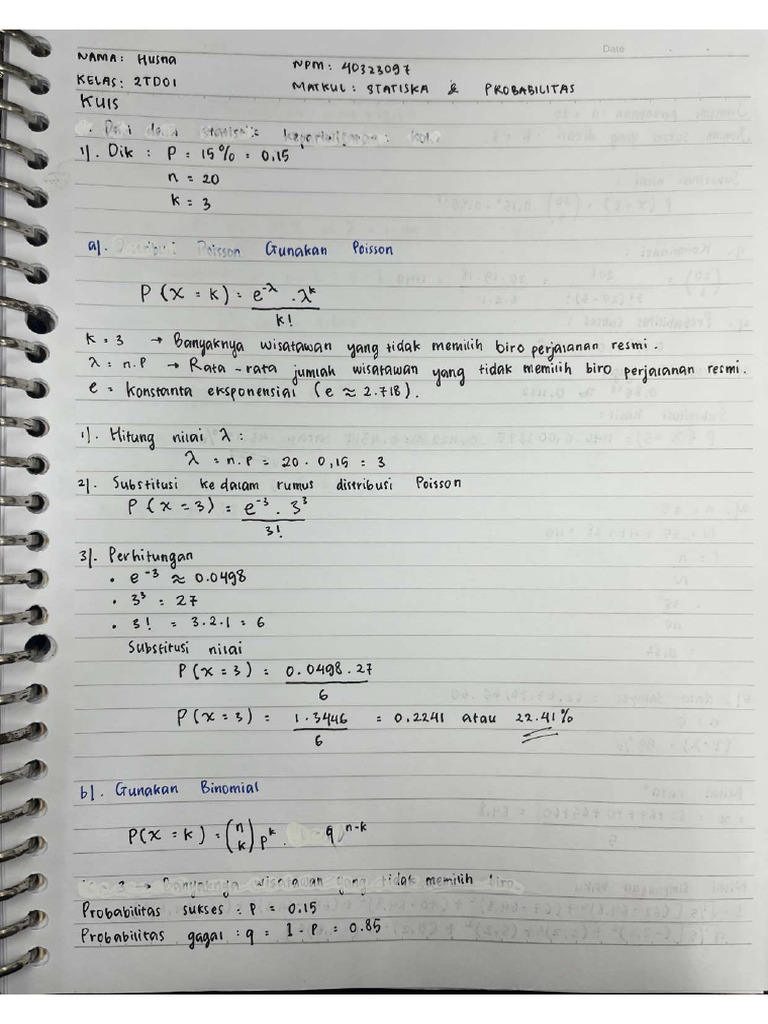 Date
NAMA: Husna
NPM: 40323097
KELAS: 2TD01
MATKUL: STATISKA & PROBABILITAS
KUIS
1). Dik : P = 15% = 0.15
n = 20
k = 3
a). Distribusi Poisson Gunakan Poisson
P(X = k) = e^-λ . λ^k / k!
k = 3 → Banyaknya wisatawan yang tidak memilih biro perjalanan resmi.
λ = n.p → Rata-rata jumlah wisatawan yang tidak memilih biro perjalanan resmi.
e = Konstanta eksponensial (e ≈ 2.718).
1). Hitung nilai λ :
λ = n.p = 20 . 0,15 = 3
2). Substitusi ke dalam rumus distribusi Poisson
P(x = 3) = e^-3 . 3^3 / 3!
3). Perhitungan
• e^-3 ≈ 0.0498
• 3^3 = 27
• 3! = 3.2.1 = 6
Substitusi nilai
P(x = 3) = 0.0498 . 27 / 6
P(x = 3) = 1.3446 / 6 = 0.2241 atau 22.41%
b). Gunakan Binomial
P(X = k) = (n k) p^k . q^n-k
3 → Banyaknya wisatawan yang tidak memilih biro
Probabilitas sukses : P = 0.15
Probabilitas gagal : q = 1 - P = 0.85